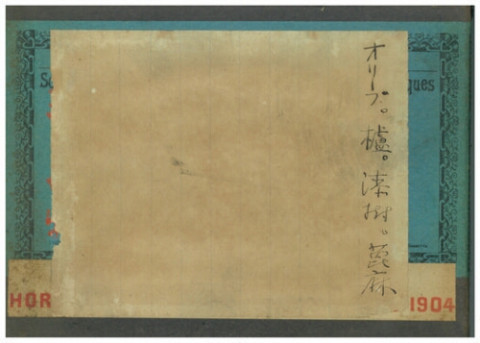 オリーブ。櫨。漆樹。蓖麻
ques
HOR
1904